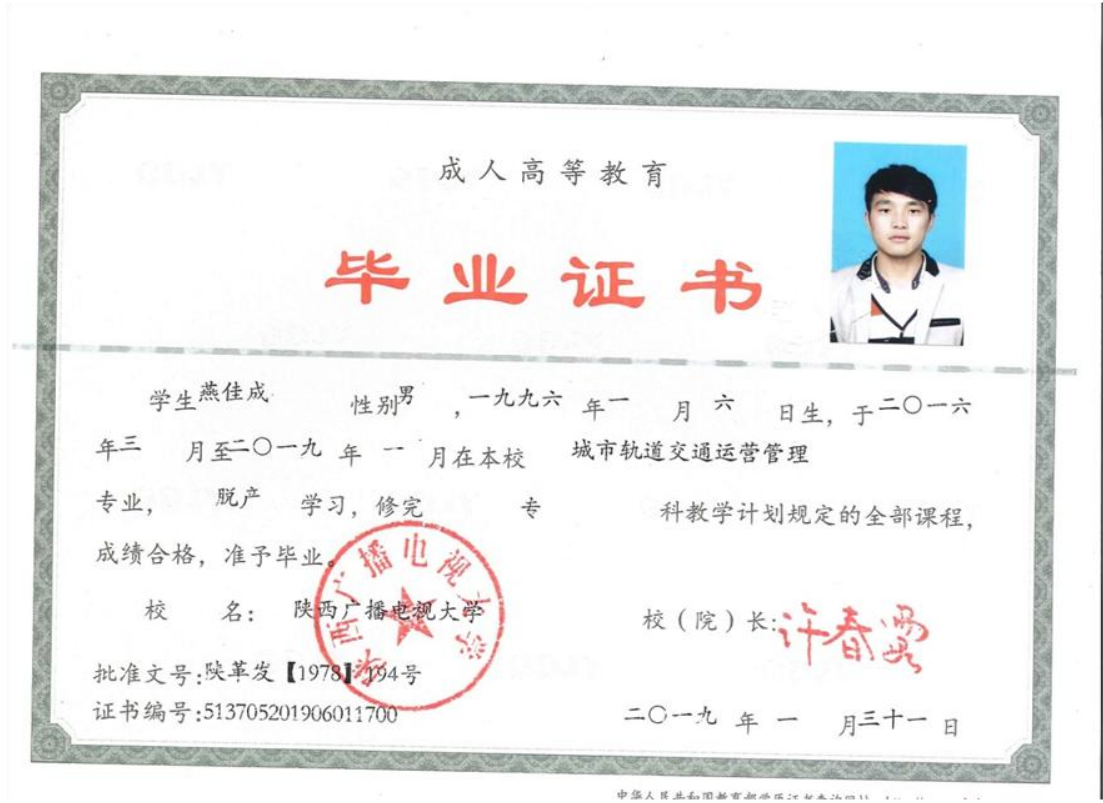 成人高等教育
毕业证书
学生燕佳成 性别男 ,一九九六 年一 月 六 日生，于二〇一六
年三 月至二〇一九 年 一 月在本校 城市轨道交通运营管理
专业， 脱产 学习，修完 专 科教学计划规定的全部课程，
成绩合格，准予毕业。
陕西广播电视大学
校 名： 陕西广播电视大学
校（院）长:许春霞
批准文号:陕革发【1978】194号
证书编号:513705201906011700
二〇一九 年 一 月三十一 日